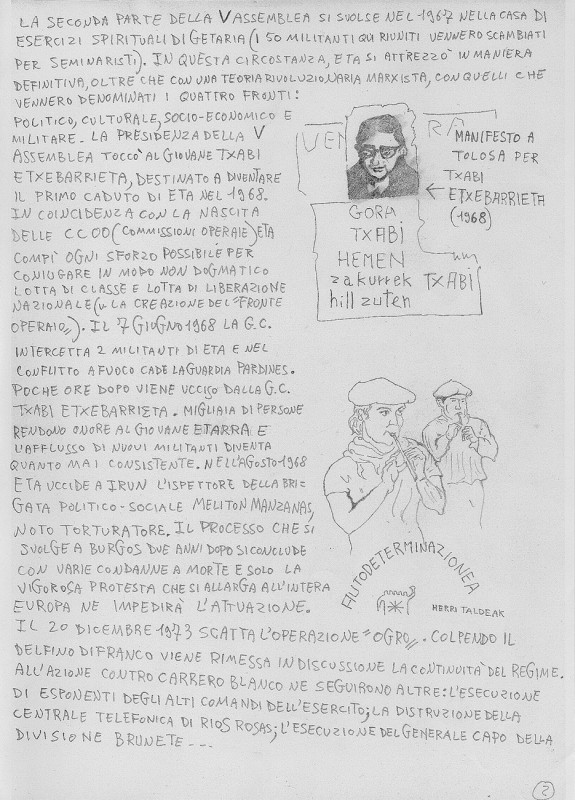 LA SECONDA PARTE DELLA V ASSEMBLEA SI SVOLSE NEL 1967 NELLA CASA DI
ESERCIZI SPIRITUALI DI GETARIA (I 50 MILITANTI QUI RIUNITI VENNERO SCAMBIATI
PER SEMINARISTI). IN QUESTA CIRCOSTANZA, ETA SI ATTREZZO' IN MANIERA
DEFINITIVA, OLTRE CHE CON UNA TEORIA RIVOLUZIONARIA MARXISTA, CON QUELLI CHE
VENNERO DENOMINATI I QUATTRO FRONTI:
POLITICO, CULTURALE, SOCIO-ECONOMICO E
MILITARE. LA PRESIDENZA DELLA V
ASSEMBLEA TOCCO' AL GIOVANE TXABI
ETXEBARRIETA, DESTINATO A DIVENTARE
IL PRIMO CADUTO DI ETA NEL 1968.
IN COINCIDENZA CON LA NASCITA
DELLE CCOO (COMMISSIONI OPERAIE) ETA
COMPI' OGNI SFORZO POSSIBILE PER
CONIUGARE IN MODO NON DOGMATICO
LOTTA DI CLASSE E LOTTA DI LIBERAZIONE
NAZIONALE (LA CREAZIONE DEL "FRONTE
OPERAIO"). IL 7 GIUGNO 1968 LA G.C.
INTERCETTA 2 MILITANTI DI ETA E NEL
CONFLITTO A FUOCO CADE LA GUARDIA PARDINES.
POCHE ORE DOPO VIENE UCCISO DALLA G.C.
TXABI ETXEBARRIETA. MIGLIAIA DI PERSONE
RENDONO ONORE AL GIOVANE ETARRA E
L'AFFLUSSO DI NUOVI MILITANTI DIVENTA
QUANTO MAI CONSISTENTE. NELL'AGOSTO 1968
ETA UCCIDE A IRUN L'ISPETTORE DELLA BRI-
GATA POLITICO-SOCIALE MELITON MANZANAS,
NOTO TORTURATORE. IL PROCESSO CHE SI
SVOLGE A BURGOS DUE ANNI DOPO SI CONCLUDE
CON VARIE CONDANNE A MORTE E SOLO LA
VIGOROSA PROTESTA CHE SI ALLARGA ALL'INTERA
EUROPA NE IMPEDIRÀ L'ATTUAZIONE.
IL 20 DICEMBRE 1973 SCATTA L'OPERAZIONE "OGRO". COLPENDO IL
DELFINO DI FRANCO VIENE RIMESSA IN DISCUSSIONE LA CONTINUITÀ DEL REGIME.
ALL'AZIONE CONTRO CARRERO BLANCO NE SEGUIRONO ALTRE: L'ESECUZIONE
DI ESPONENTI DEGLI ALTI COMANDI DELL'ESERCITO; LA DISTRUZIONE DELLA
CENTRALE TELEFONICA DI RIOS ROSAS; L'ESECUZIONE DEL GENERALE CAPO DELLA
DIVISIONE BRUNETE ---
VEN
R/A
MANIFESTO A
TOLOSA PER
TXABI
ETXEBARRIETA
(1968)
GORA
TXABI
HEMEN
zakurrek TXABI
hill zuten
AUTODETERMINAZIONEA
HERRI TALDEAK
2